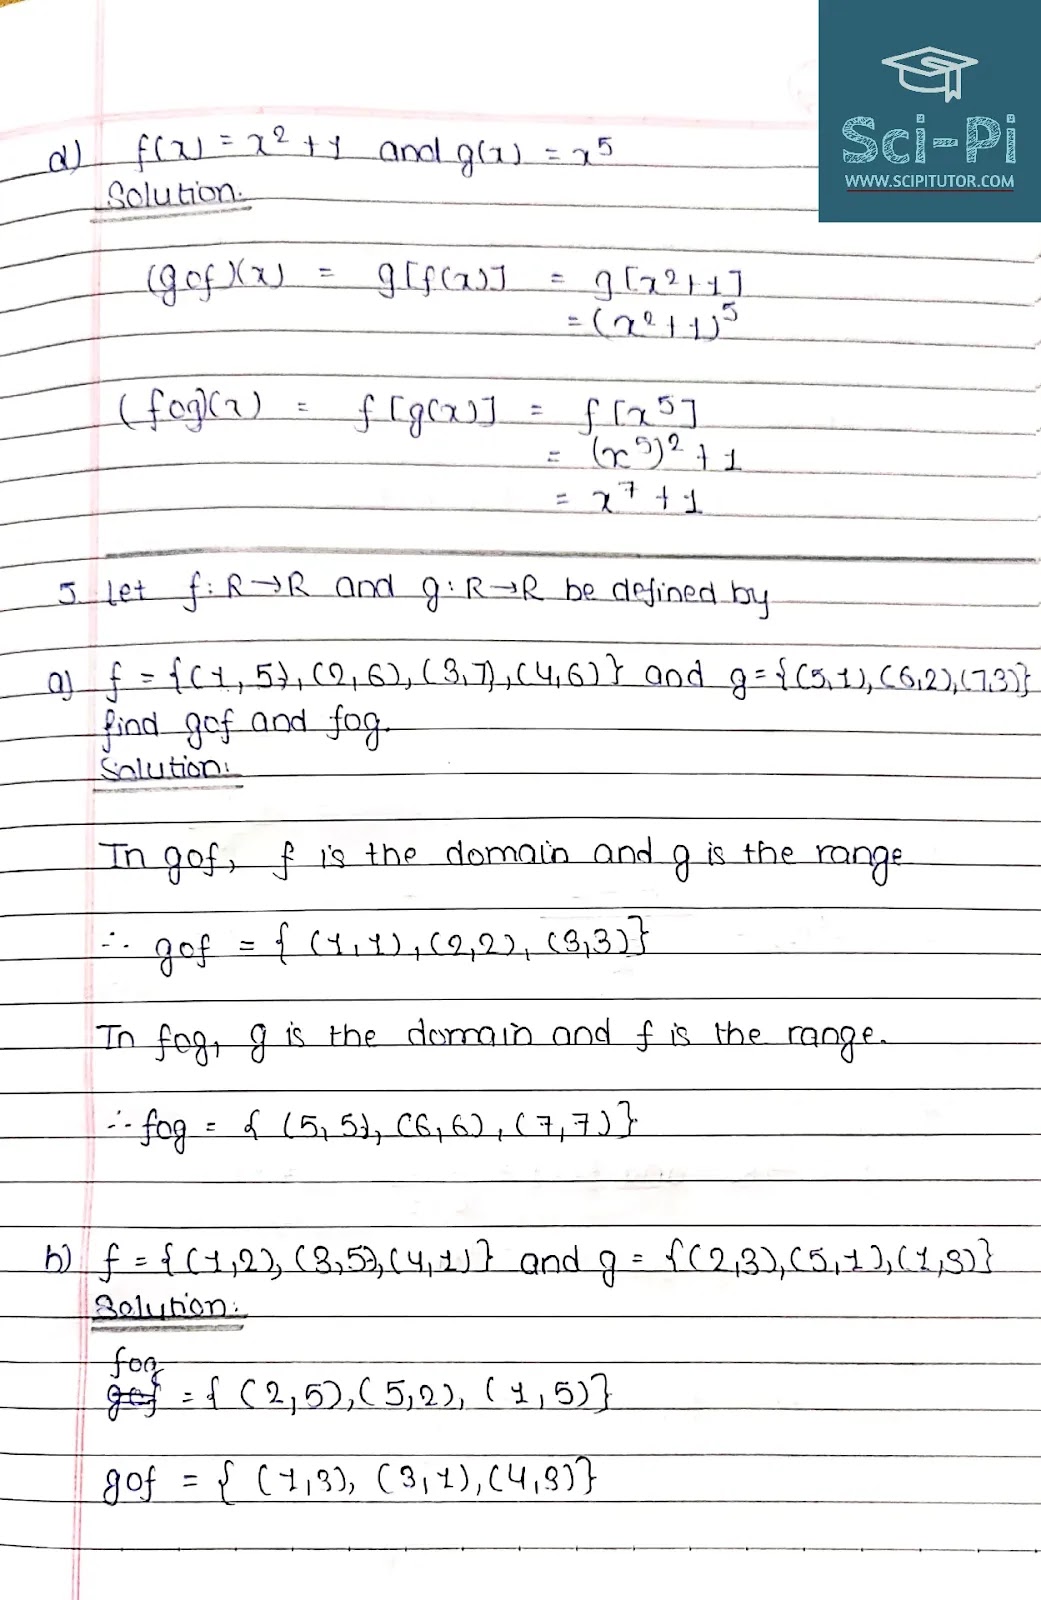 Sci-Pi
WWW.SCIPITUTOR.COM
d) f(x) = x² + 1 and g(x) = x⁵
Solution:
(gof)(x) = g[f(x)] = g[x²+1]
= (x²+1)⁵
(fog)(x) = f[g(x)] = f[x⁵]
= (x⁵)² + 1
= x⁷ + 1
5. Let f: R→R and g: R→R be defined by
a) f = {(1,5), (2,6), (3,7), (4,6)} and g={(5,1), (6,2), (7,3)}
find gof and fog.
Solution:
In gof, f is the domain and g is the range
∴ gof = { (1,1), (2,2), (3,3)}
In fog, g is the domain and f is the range.
∴ fog = { (5,5), (6,6), (7,7)}
b) f = {(1,2), (3,5), (4,1)} and g = {(2,3), (5,1), (1,3)}
Solution:
fog
gof = { (2,5), (5,2), (1,5)}
gof = { (1,3), (3,1), (4,3)}